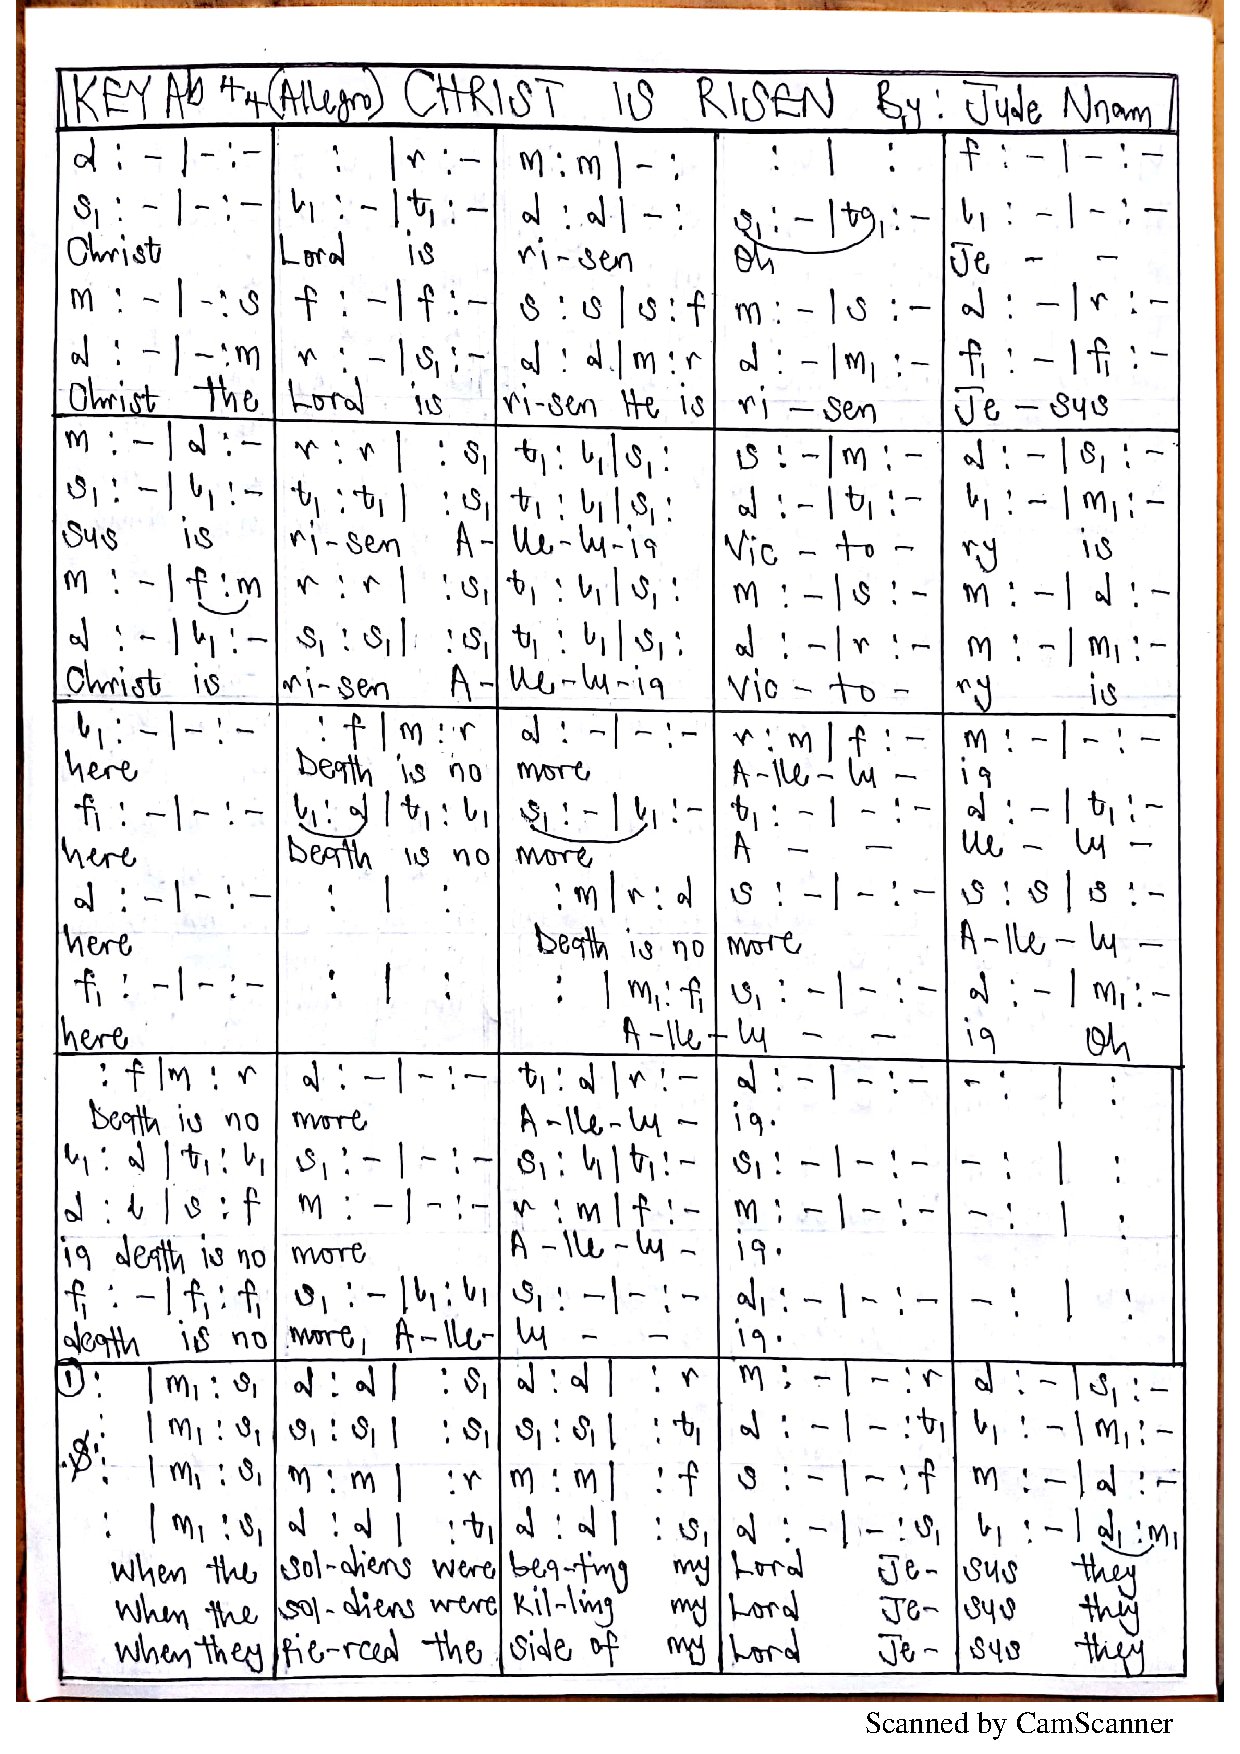 KEY Ab 4/4 (Allegro) CHRIST IS RISEN By: Jude Nnam
d : – | – : – : | r : – m : m | – : : | : f : – | – : –
s₁ : – | – : – l₁ : – | t₁ : – d : d | – : s₁ : – | ta₁ : – l₁ : – | – : –
Christ Lord is ri-sen Oh Je - -
m : – | – : s f : – | f : – s : s | s : f m : – | s : – d : – | r : –
d : – | – : m r : – | s₁ : – d : d | m : r d : – | m₁ : – f₁ : – | f₁ : –
Christ the Lord is ri-sen He is ri - sen Je - sus
m : – | d : – r : r | : s₁ t₁ : l₁ | s₁ : s : – | m : – d : – | s₁ : –
s₁ : – | l₁ : – t₁ : t₁ | : s₁ t₁ : l₁ | s₁ : d : – | t₁ : – l₁ : – | m₁ : –
sus is ri-sen A- lle-lu-ia Vic - to - ry is
m : – | f : m r : r | : s₁ t₁ : l₁ | s₁ : m : – | s : – m : – | d : –
d : – | l₁ : – s₁ : s₁ | : s₁ t₁ : l₁ | s₁ : d : – | r : – m : – | m₁ : –
Christ is ri-sen A- lle-lu-ia Vic - to - ry is
l₁ : – | – : – : f | m : r d : – | – : – r : m | f : – m : – | – : –
here Death is no more A-lle-lu - ia
f₁ : – | – : – l₁ : d | t₁ : l₁ s₁ : – | l₁ : – t₁ : – | – : – d : – | t₁ : –
here Death is no more A - - lle - lu -
d : – | – : – : | : : m | r : d s : – | – : – s : s | s : –
here Death is no more A-lle-lu -
f₁ : – | – : – : | : : | m₁ : f₁ s₁ : – | – : – d : – | m₁ : –
here A-lle-lu - - ia Oh
: f | m : r d : – | – : – t₁ : d | r : – d : – | – : – – : | :
Death is no more A-lle-lu - ia.
l₁ : d | t₁ : l₁ s₁ : – | – : – s₁ : l₁ | t₁ : – s₁ : – | – : – – : | :
d : l | s : f m : – | – : – r : m | f : – m : – | – : – – : | :
ia death is no more A-lle-lu - ia.
f₁ : – | f₁ : f₁ s₁ : – | l₁ : l₁ s₁ : – | – : – d₁ : – | – : – – : | :
death is no more, A-lle- lu - - ia.
① : | m₁ : s₁ d : d | : s₁ d : d | : r m : – | – : r d : – | s₁ : –
: | m₁ : s₁ s₁ : s₁ | : s₁ s₁ : s₁ | : t₁ d : – | – : t₁ l₁ : – | m₁ : –
.S. : | m₁ : s₁ m : m | : r m : m | : f s : – | – : f m : – | d : –
: | m₁ : s₁ d : d | : t₁ d : d | : s₁ d : – | – : s₁ l₁ : – | d₁ : m₁
When the sol-diers were bea-ting my Lord Je- sus they
When the sol-diers were kil-ling my Lord Je- sus they
When they pie-rced the side of my Lord Je- sus they
Scanned by CamScanner